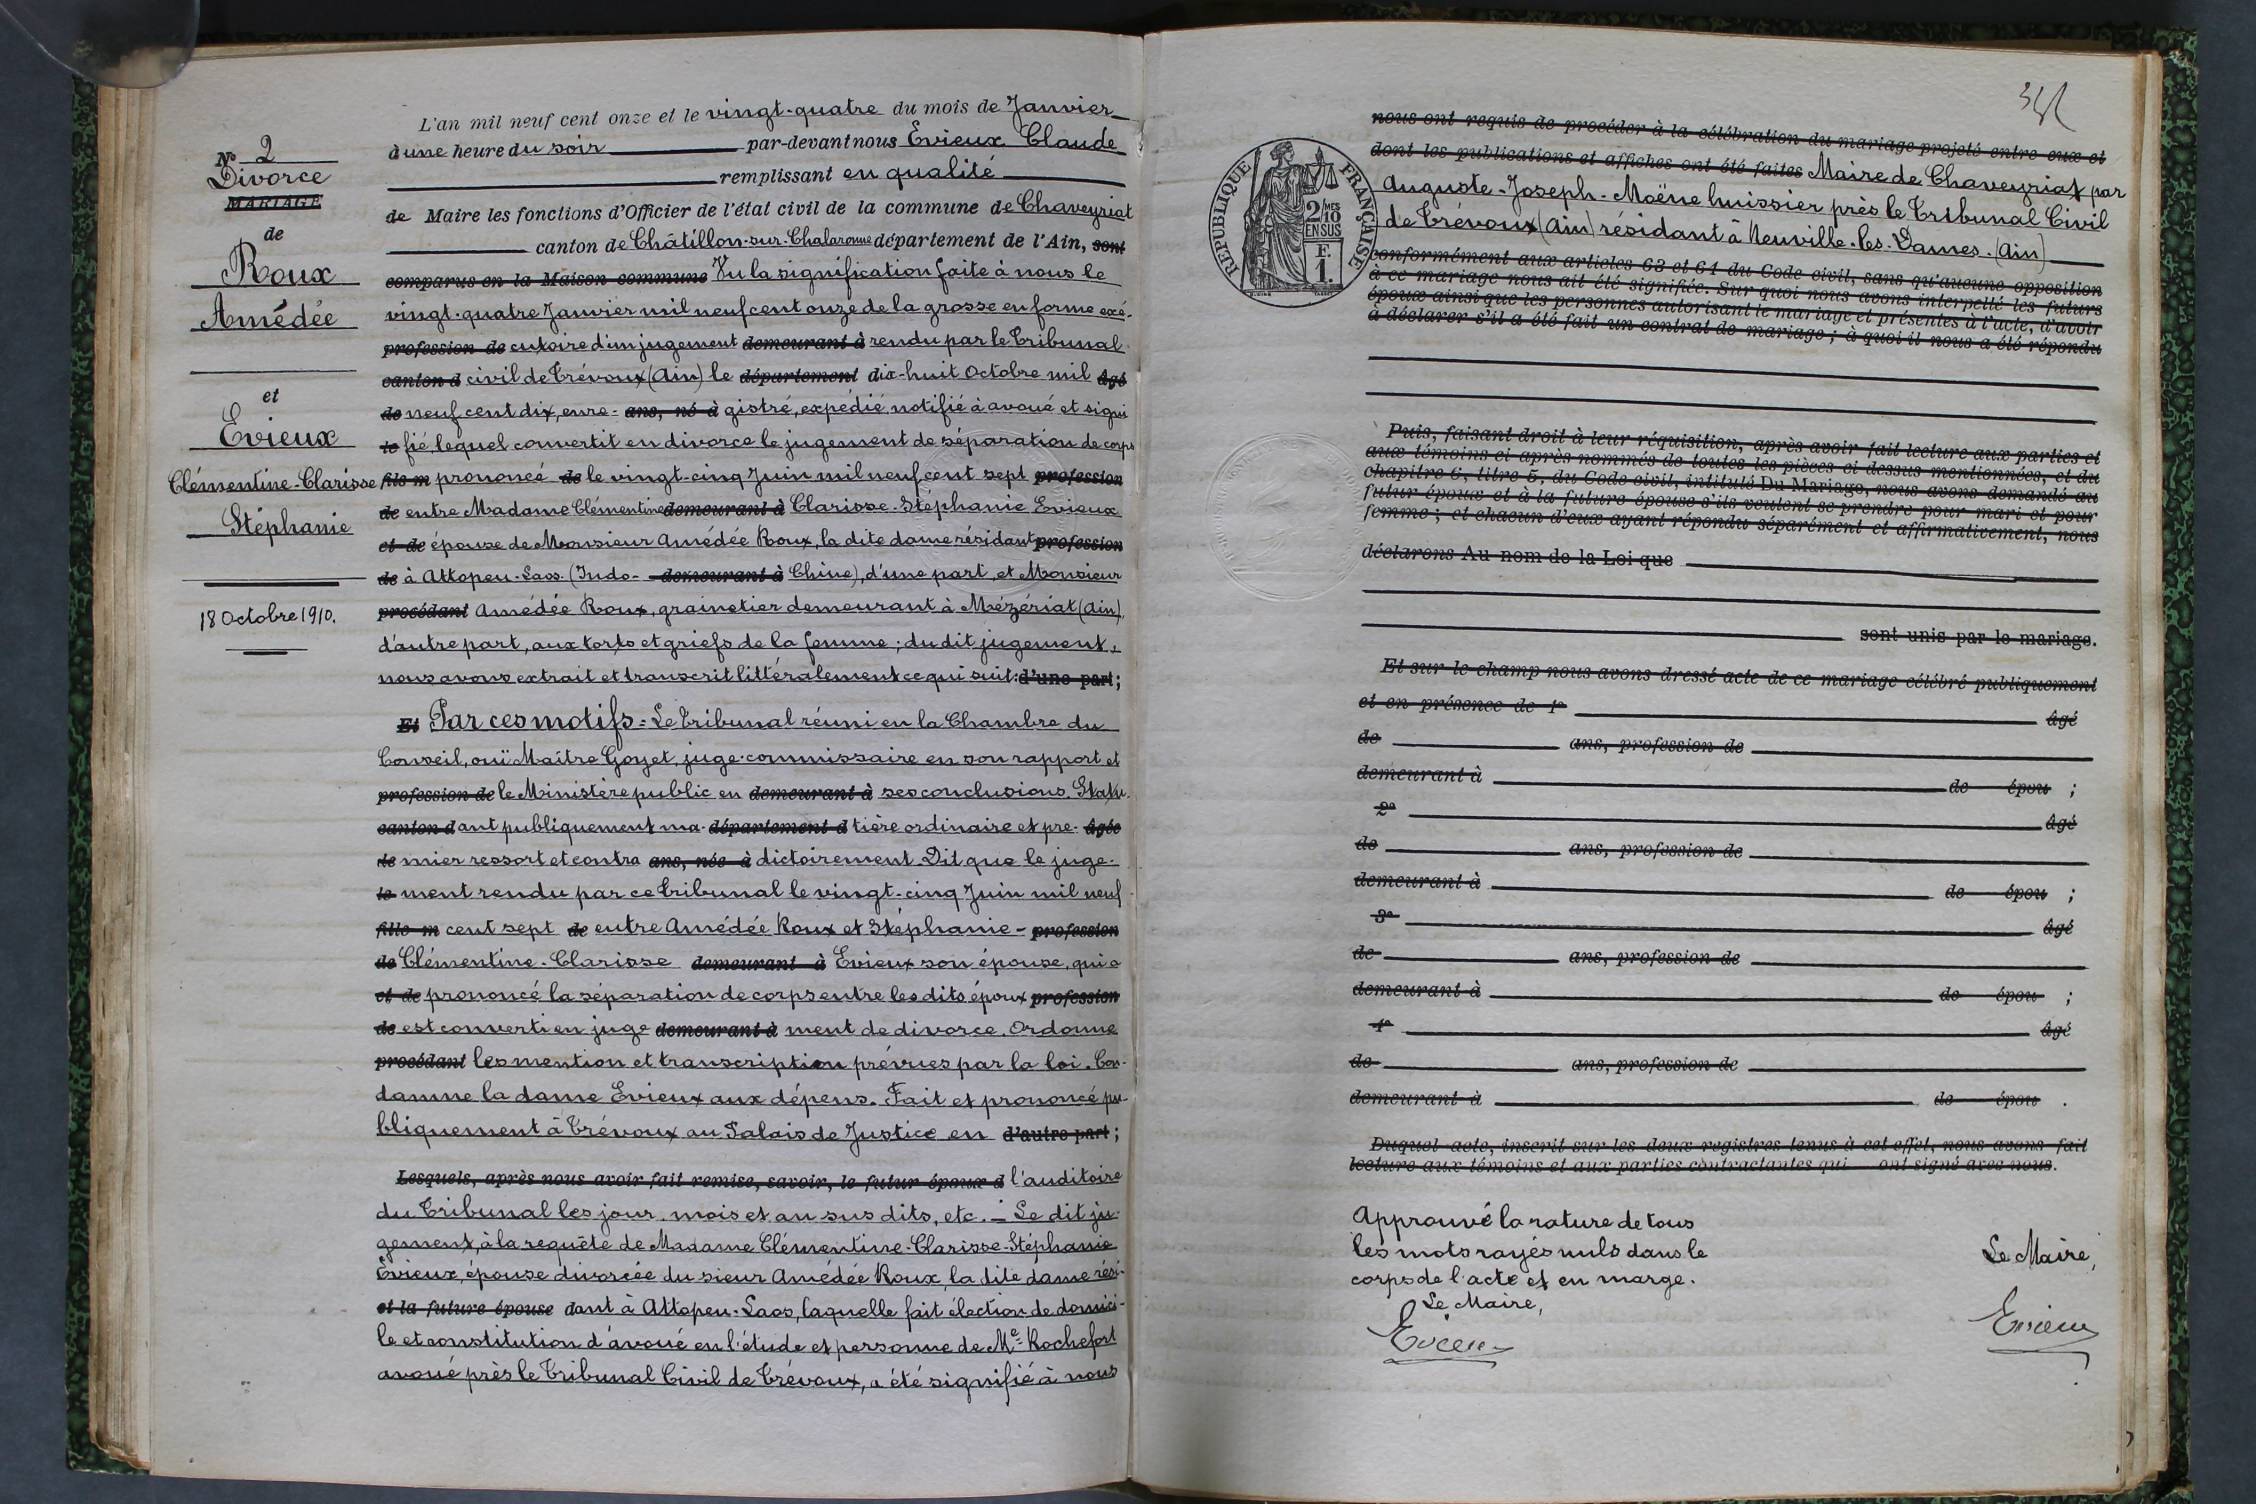 N° 2
Divorce
MARIAGE
de
Roux
Amédée
et
Evieux
Clémentine-Clarisse
Stéphanie
18 Octobre 1910.
L'an mil neuf cent onze et le vingt-quatre du mois de Janvier
à une heure du soir par-devant nous Evieux Claude
remplissant en qualité
de Maire les fonctions d'Officier de l'état civil de la commune de Chaveyriat
canton de Châtillon-sur-Chalaronne département de l'Ain, sont
comparus en la Maison commune Vu la signification faite à nous le
vingt-quatre Janvier mil neuf cent onze de la grosse en forme exé-
profession de cutoire d'un jugement demeurant à rendu par le Tribunal
canton d civil de Trévoux (Ain) le département dix-huit Octobre mil âgé
de neuf cent dix, enre- ans, né à gistré, expédié, notifié à avoué et signi
le fié, lequel convertit en divorce le jugement de séparation de corps
fils m prononcé de le vingt-cinq Juin mil neuf cent sept profession
de entre Madame Clémentine demeurant à Clarisse-Stéphanie Evieux
et de épouse de Monsieur Amédée Roux, la dite dame résidant profession
de à Attopeu-Laos (Indo- demeurant à Chine), d'une part, et Monsieur
procédant Amédée Roux, grainetier demeurant à Mézériat (Ain),
d'autre part, aux torts et griefs de la femme ; du dit jugement,
nous avons extrait et transcrit littéralement ce qui suit : d'une part ;
Et Par ces motifs = Le Tribunal réuni en la Chambre du
Conseil, ouï Maître Goyet, juge-commissaire en son rapport et
profession de le Ministère public en demeurant à ses conclusions. Statu-
canton d ant publiquement ma- département d tière ordinaire et pre- âgée
de mier ressort et contra ans, née à dictoirement. Dit que le juge-
le ment rendu par ce Tribunal le vingt-cinq Juin mil neuf
fille m cent sept de entre Amédée Roux et Stéphanie- profession
de Clémentine-Clarisse demeurant à Evieux son épouse, qui a
et de prononcé la séparation de corps entre les dits époux profession
de est converti en juge demeurant à ment de divorce. Ordonne
procédant les mention et transcription prévues par la loi. Con-
damne la dame Evieux aux dépens. Fait et prononcé pu-
bliquement à Trévoux au Palais de Justice en d'autre part ;
Lesquels, après nous avoir fait remise, savoir, le futur époux d l'auditoire
du Tribunal les jour, mois et an sus dits, etc. - Le dit ju-
gement, à la requête de Madame Clémentine-Clarisse-Stéphanie
Evieux, épouse divorcée du sieur Amédée Roux, la dite dame rési-
et la future épouse dant à Attopeu-Laos, laquelle fait élection de domici-
le et constitution d'avoué en l'étude et personne de Me Rochefort
avoué près le Tribunal Civil de Trévoux, a été signifié à nous
RÉPUBLIQUE FRANÇAISE
2 MES
10
EN SUS
F.
1.
nous ont requis de procéder à la célébration du mariage projeté entre eux et
dont les publications et affiches ont été faites Maire de Chaveyriat par
Auguste-Joseph-Moëne huissier près le Tribunal Civil
de Trévoux (Ain) résidant à Neuville-les-Dames. (Ain)
conformément aux articles 63 et 64 du Code civil, sans qu'aucune opposition
à ce mariage nous ait été signifiée. Sur quoi nous avons interpellé les futurs
époux ainsi que les personnes autorisant le mariage et présentes à l'acte, d'avoir
à déclarer s'il a été fait un contrat de mariage ; à quoi il nous a été répondu
Puis, faisant droit à leur réquisition, après avoir fait lecture aux parties et
aux témoins ci après nommés de toutes les pièces ci dessus mentionnées, et du
chapitre 6, titre 5, du Code civil, intitulé Du Mariage, nous avons demandé au
futur époux et à la future épouse s'ils veulent se prendre pour mari et pour
femme ; et chacun d'eux ayant répondu séparément et affirmativement, nous
déclarons Au nom de la Loi que
sont unis par le mariage.
Et sur le champ nous avons dressé acte de ce mariage célébré publiquement
et en présence de 1° âgé
de ans, profession de
demeurant à de épou ;
2° âgé
de ans, profession de
demeurant à de épou ;
3° âgé
de ans, profession de
demeurant à de épou ;
4° âgé
de ans, profession de
demeurant à de épou .
Duquel acte, inscrit sur les deux registres tenus à cet effet, nous avons fait
lecture aux témoins et aux parties contractantes qui ont signé avec nous.
Approuvé la rature de tous
les mots rayés nuls dans le
corps de l'acte et en marge.
Le Maire,
Evieux
Le Maire,
Evieux